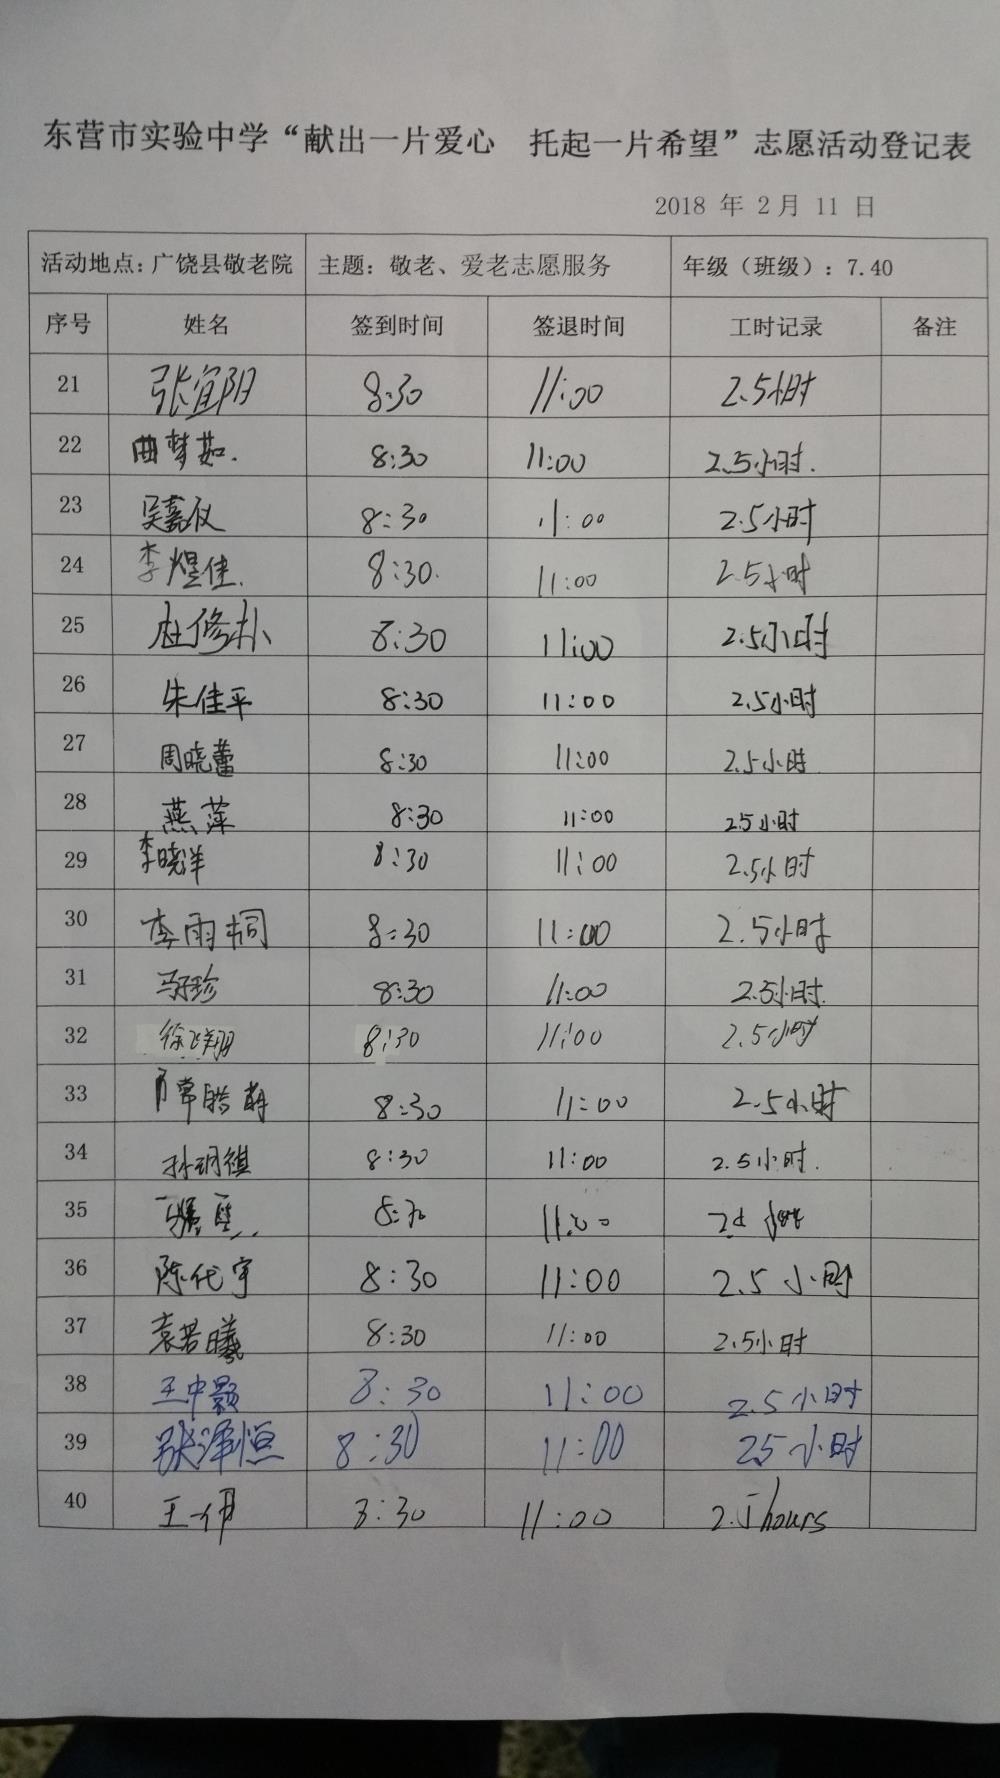 东营市实验中学“献出一片爱心 托起一片希望”志愿活动登记表
2018 年 2 月 11 日
活动地点：广饶县敬老院 主题：敬老、爱老志愿服务 年级（班级）：7.40
序号 姓名 签到时间 签退时间 工时记录 备注
21 张宜阳 8:30 11:00 2.5小时
22 曲梦茹. 8:30 11:00 2.5小时.
23 吴嘉仪 8:30 11:00 2.5小时
24 李煜佳. 8:30. 11:00 2.5小时
25 杜修朴 8:30 11:00 2.5小时
26 朱佳平 8:30 11:00 2.5小时
27 周晓蕾 8:30 11:00 2.5小时
28 燕萍 8:30 11:00 2.5小时
29 李晓洋 8:30 11:00 2.5小时
30 李雨桐 8:30 11:00 2.5小时
31 8:30 11:00 2.5小时.
32 徐飞翔 8:30 11:00 2.5小时
33 8:30 11:00 2.5小时
34 孙玥祺 8:30 11:00 2.5小时.
35 8:30 11:00
36 陈代宇 8:30 11:00 2.5小时
37 袁若曦 8:30 11:00 2.5小时
38 王中颢 8:30 11:00 2.5小时
39 张泽恒 8:30 11:00 2.5小时
40 王一伊 8:30 11:00 2.5hours